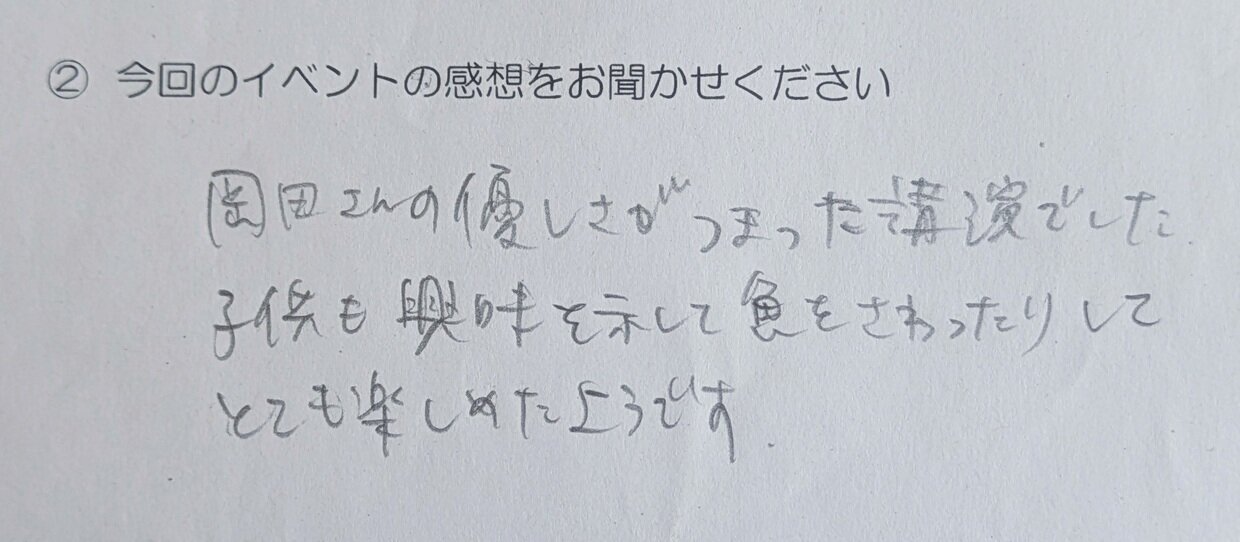 ② 今回のイベントの感想をお聞かせください
岡田さんの優しさがつまった講演でした.
子供も興味を示して魚をさわったりして
とても楽しめたようです.